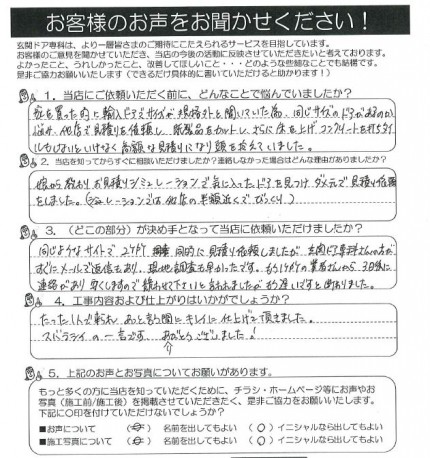 お客様のお声をお聞かせください！
玄関ドア専科は、より一層皆さまのご期待にこたえられるサービスを目指しています。
お客様のご意見を聞かせていただき、当店の今後の活動に反映させていただきたいと考えております。
よかったこと、うれしかったこと、改善してほしいこと・・・どのような些細なことでも結構です。
是非ご協力お願いいたします（できるだけ具体的に書いていただけると助かります！）
1．当店にご依頼いただく前に、どんなことで悩んでいましたか？
家を買った時に輸入ドアでサイズが規格外と聞いていた為、同じサイズのドアがあるのか
悩み、他店で見積りを依頼し、既製品をカットし、さらに床を上げコンクリートを打ちタイル
もしないといけなく高額な見積りになり頭を抱えていました。
2．当店を知ってからすぐに相談いただけましたか？連絡しなかった場合はどんな理由がありましたか？
お見積りシミュレーションで気に入ったドアを見つけ ダメ元で見積り依頼
をしました。（シュミレーションでは他店の半額近くでびっくり）
3．（どこの部分）が決め手となって当店に依頼いただけましたか？
同じようなサイトで2ヶ所 同時に見積り依頼しましたが 玄関ドア専科さんの方が
すぐにメールで返信もあり、現地調査も早かったです。もう1ヶ所の業者さんから3日後に
連絡があり 安くしますので 下さいと言われましたが もう遅いですと断わりました。
4．工事内容および仕上がりはいかがでしょうか？
たった1人で来られ あっと言う間にキレイに仕上げて頂きました。
スバラシイの一言です。ありがとうございました！
5．上記のお声とお写真についてお願いがあります。
もっと多くの方に当店を知っていただくために、チラシ・ホームページ等にお声やお
写真（施工前/施工後）を掲載させていただきたく、是非ご協力をお願いいたします。
下記に〇印を付けていただけないでしょうか？
■お声について （ ） 名前を出してもよい （〇） イニシャルなら出してもよい
■施工写真について （ ） 名前を出してもよい （〇） イニシャルなら出してもよい